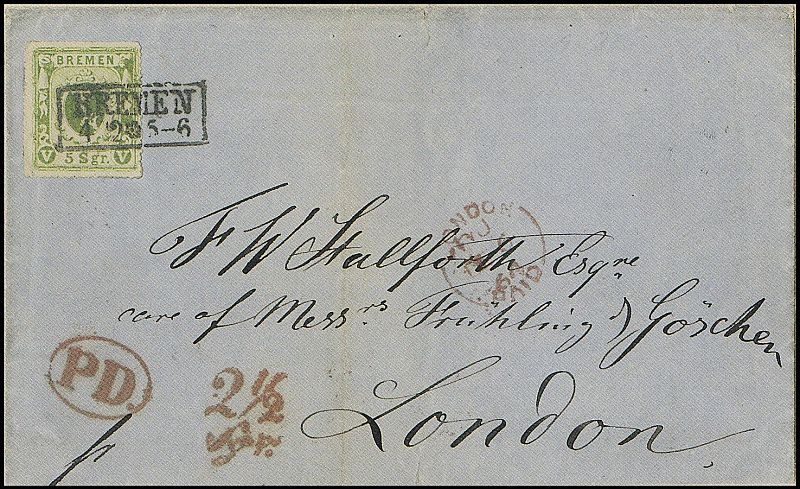 BREMEN
5 Sgr.
BREMEN
4 2 5-6
LONDON
PAID
F W Stallforth Esqre
care of Messrs Frühling & Göschen
London
PD.
2 1/2
Sgr.